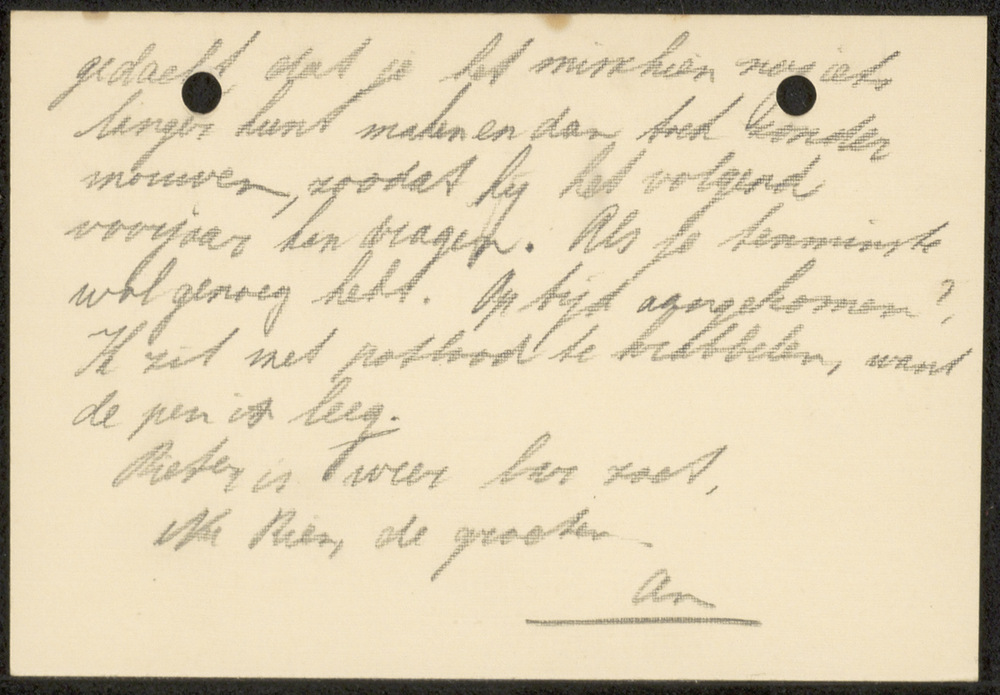 gedacht, dat je het misschien nog iets
langer kunt maken en dan toch zonder
mouwen, zoodat hij het volgend
voorjaar kan dragen. Als je tenminste
wol genoeg hebt. Op tijd aangekomen?
Ik zit met potlood te krabbelen, want
de pen is leeg.
Pieter is weer zoet,
Rien, de groeten
An